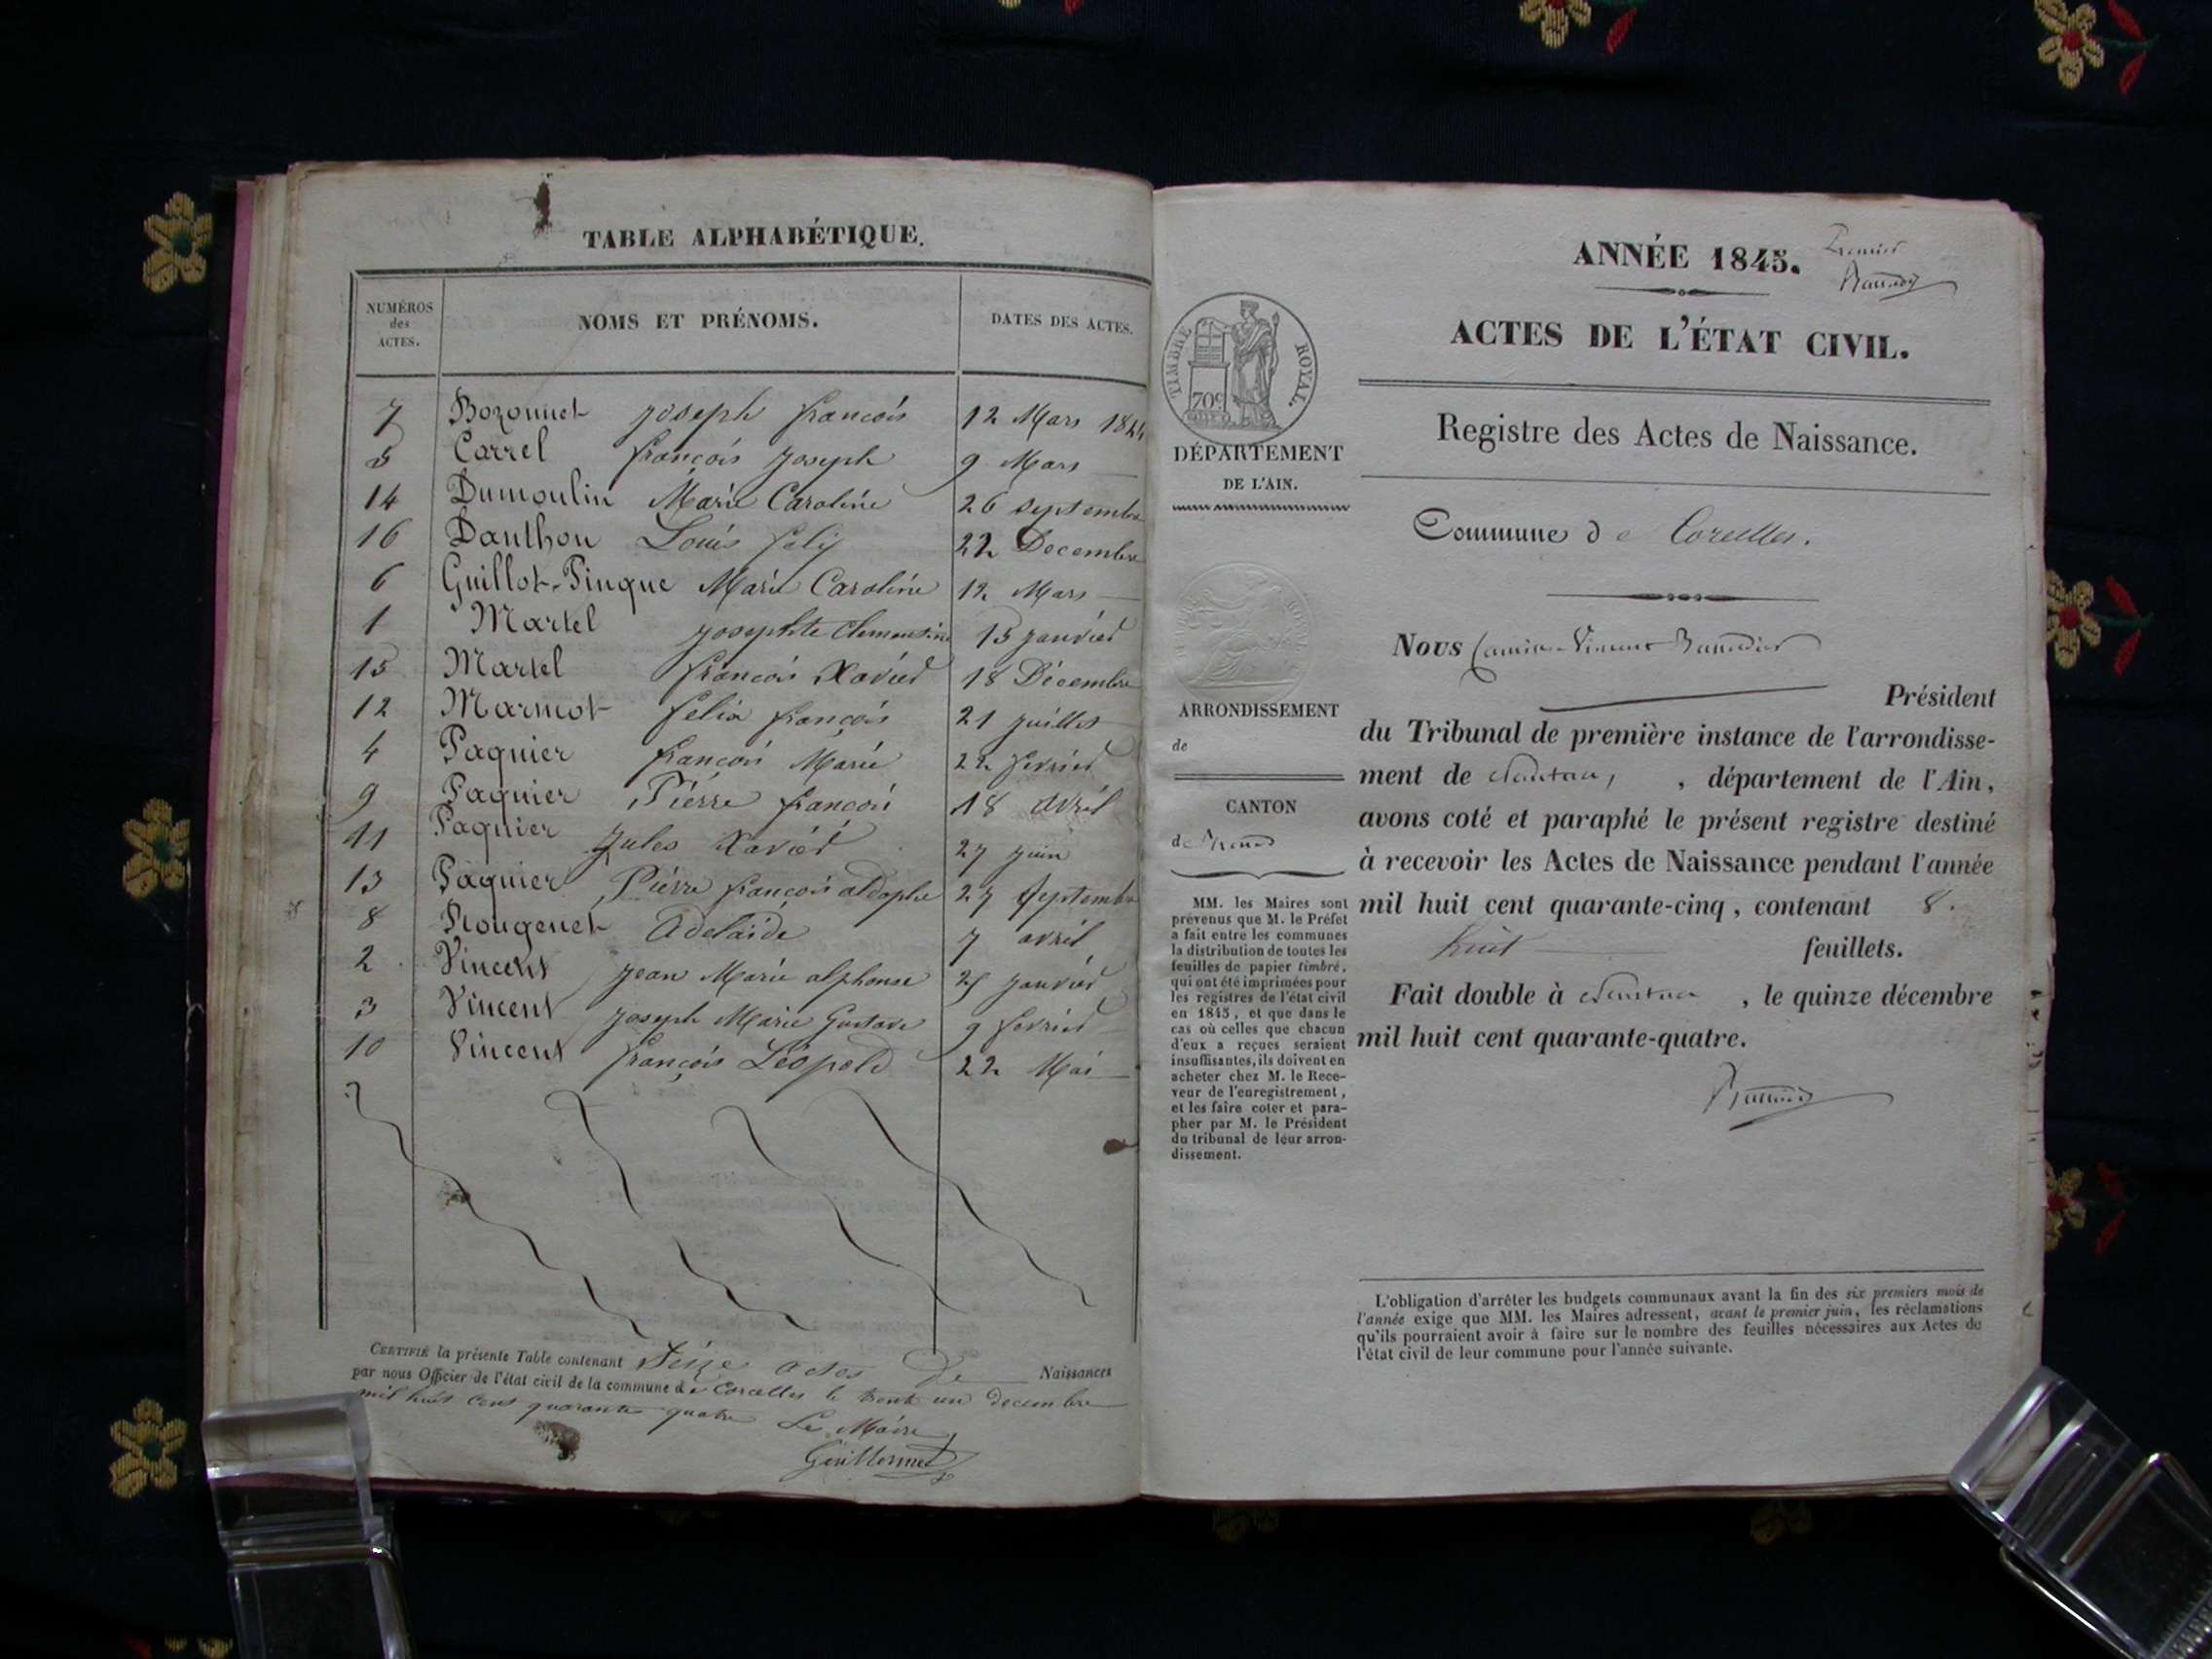 TABLE ALPHABÉTIQUE.
NUMÉROS des ACTES.
NOMS ET PRÉNOMS.
DATES DES ACTES.
7 Bozonnet joseph francois 12 Mars 1844
5 Carrel francois joseph 9 Mars
14 Dumoulin Marie Caroline 26 septembre
16 Danthon Louis felix 22 Decembre
6 Guillot-Pinque Marie Caroline 12 Mars
1 Martel josephte Clementine 15 janvier
15 Martel francois Xavier 18 Décembre
12 Marmot felix françois 21 juillet
4 Paquier francois Marie 22 fevrier
9 Paquier Pierre francois 18 avril
11 Paquier jules Xavier 27 juin
13 Paquier Pierre françois aldophe 27 septembre
8 Rougenet adelaide 7 avril
2 Vincent jean Marie alphonse 29 janvier
3 Vincent joseph Marie Gustave 9 fevrier
10 Vincent françois Léopold 22 Mai
CERTIFIÉ la présente Table contenant Seize actes de Naissances
par nous Officier de l'état civil de la commune de Corcelles le trente un decembre
mil huit cent quarante quatre Le Maire
Guillermet
ANNÉE 1845.
Premier
ACTES DE L'ÉTAT CIVIL.
TIMBRE ROYAL.
70c
DÉPARTEMENT
DE L'AIN.
Registre des Actes de Naissance.
Commune de Corcelles.
Nous
Président
du Tribunal de première instance de l'arrondisse-
ment de Nantua, , département de l'Ain,
avons coté et paraphé le présent registre destiné
à recevoir les Actes de Naissance pendant l'année
mil huit cent quarante-cinq, contenant 8.
huit feuillets.
Fait double à Nantua , le quinze décembre
mil huit cent quarante-quatre.
ARRONDISSEMENT
de
CANTON
de
MM. les Maires sont
prévenus que M. le Préfet
a fait entre les communes
la distribution de toutes les
feuilles de papier timbré,
qui ont été imprimées pour
les registres de l'état civil
en 1845, et que dans le
cas où celles que chacun
d'eux a reçues seraient
insuffisantes, ils doivent en
acheter chez M. le Rece-
veur de l'enregistrement,
et les faire coter et para-
pher par M. le Président
du tribunal de leur arron-
dissement.
L'obligation d'arrêter les budgets communaux avant la fin des six premiers mois de
l'année exige que MM. les Maires adressent, avant le premier juin, les réclamations
qu'ils pourraient avoir à faire sur le nombre des feuilles nécessaires aux Actes de
l'état civil de leur commune pour l'année suivante.